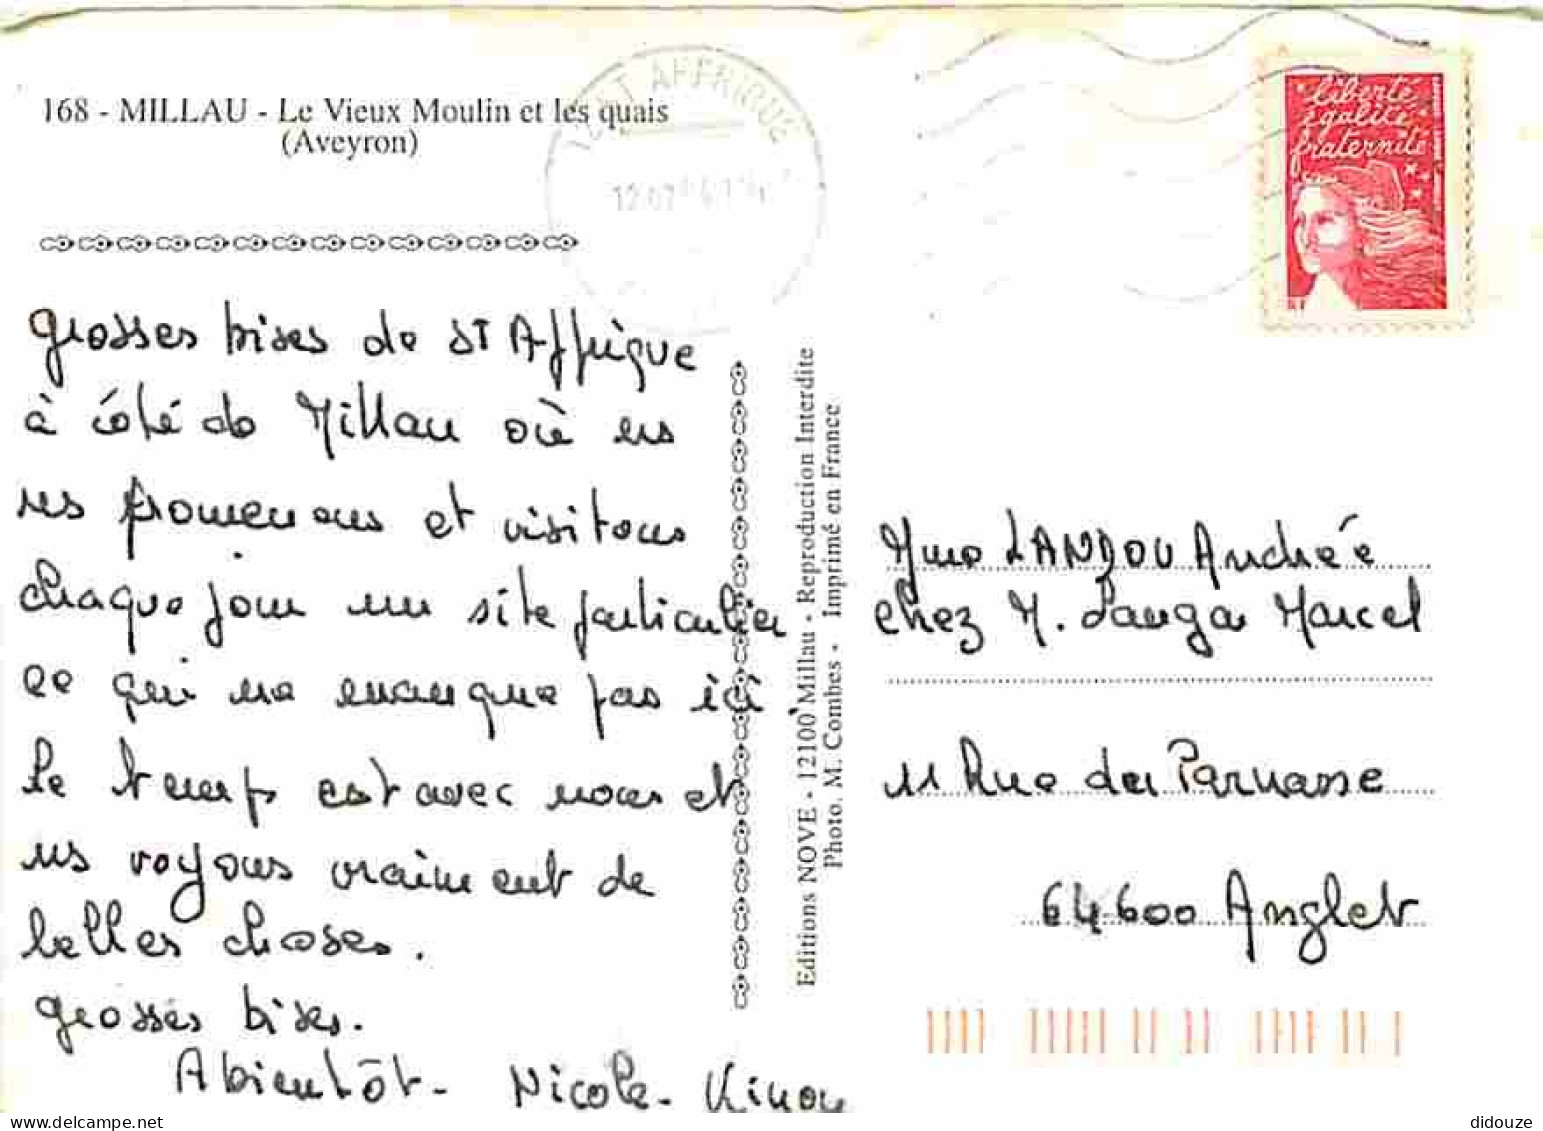 168 - MILLAU - Le Vieux Moulin et les quais
(Aveyron)
ST AFFRIQUE
liberté
égalité
fraternité
RF
Grosses bises de St Affrique
à côté de Millau où ns
ns promenons et visitons
chaque jour un site particulier
ce qui ne manque pas ici.
Le temps est avec nous et
ns voyons vraiment de
belles choses.
Grosses bises.
A bientôt - Nicole -
Editions NOVE - 12100 Millau - Reproduction Interdite
Photo. M. Combes - Imprimé en France
Mme LANDOU Andrée
chez M. Langa Marcel
11 Rue du Parnasse
64600 Anglet
didouze